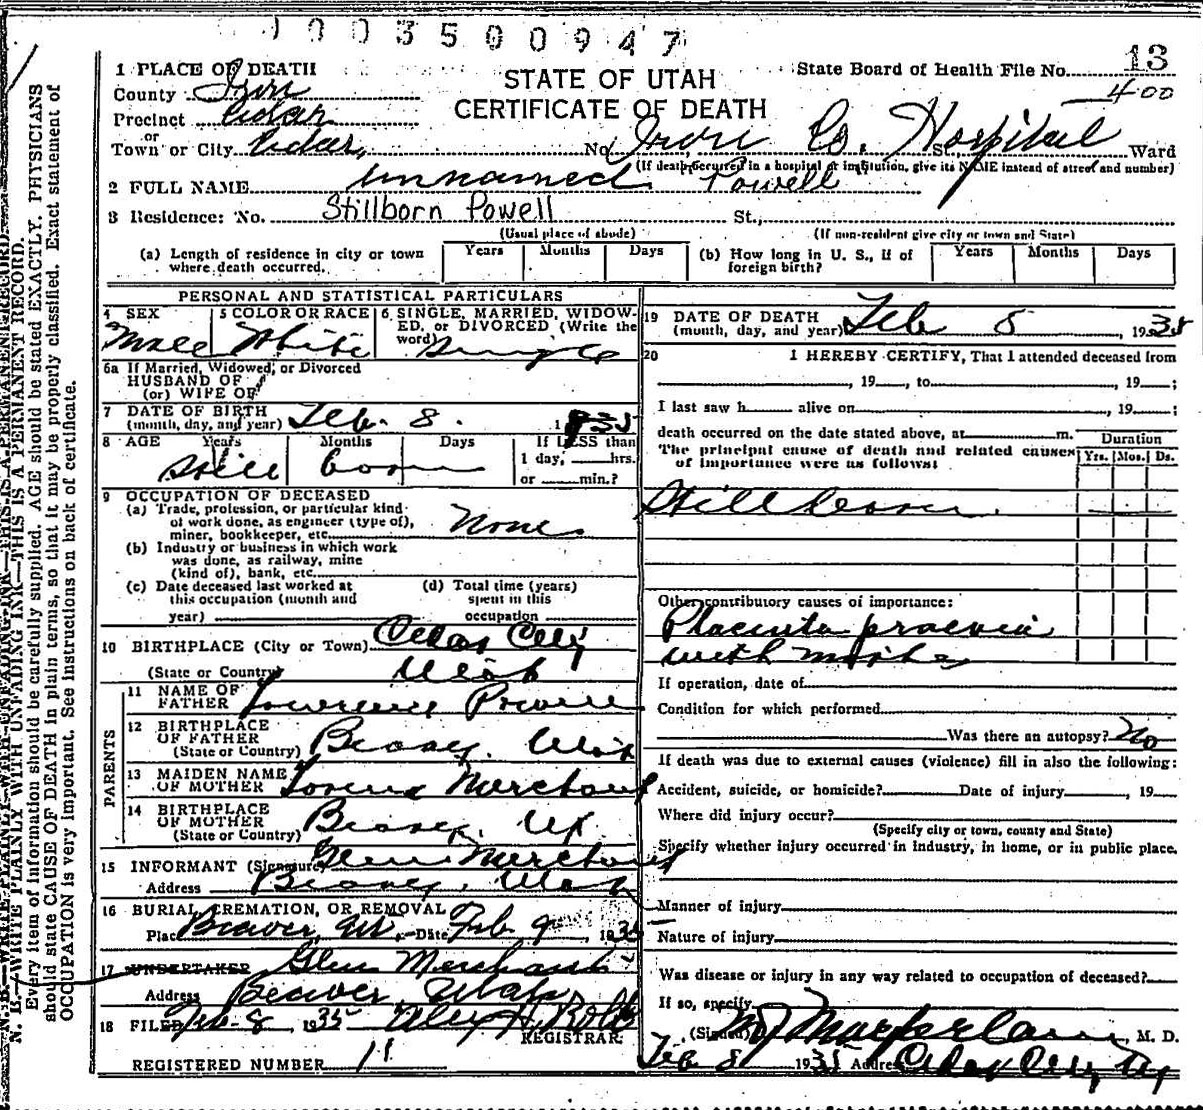 1003500947
13
1 PLACE OF DEATH
STATE OF UTAH
State Board of Health File No.
400
County Iron
CERTIFICATE OF DEATH
Precinct Cedar
or
Town or City Cedar, No. Iron Co. Hospital St., Ward
(If death occurred in a hospital or institution, give its NAME instead of street and number)
2 FULL NAME Unnamed Powell
3 Residence: No. Stillborn Powell St.,
(Usual place of abode) (If non-resident give city or town and State)
(a) Length of residence in city or town where death occurred. Years Months Days (b) How long in U. S., if of foreign birth? Years Months Days
PERSONAL AND STATISTICAL PARTICULARS
4 SEX 5 COLOR OR RACE 6 SINGLE, MARRIED, WIDOWED, or DIVORCED (Write the word)
Male White Single
6a If Married, Widowed, or Divorced
HUSBAND OF
(or) WIFE OF
7 DATE OF BIRTH
(month, day, and year) Feb. 8. 1935
8 AGE Years Months Days If LESS than
1 day, hrs.
or min.?
Still born
9 OCCUPATION OF DECEASED
(a) Trade, profession, or particular kind
of work done, as engineer (type of),
miner, bookkeeper, etc. None
(b) Industry or business in which work
was done, as railway, mine
(kind of), bank, etc.
(c) Date deceased last worked at
this occupation (month and
year)
(d) Total time (years)
spent in this
occupation
10 BIRTHPLACE (City or Town) Cedar City
(State or Country) Utah
PARENTS
11 NAME OF
FATHER Lawrence Powell
12 BIRTHPLACE
OF FATHER
(State or Country) Beaver, Utah
13 MAIDEN NAME
OF MOTHER Merchant
14 BIRTHPLACE
OF MOTHER
(State or Country) Beaver, Ut
15 INFORMANT (Signature) Glen Merchant
Address Beaver, Utah
16 BURIAL, CREMATION, OR REMOVAL
Place Beaver, Ut. Date Feb 9 1935
17 UNDERTAKER Glen Merchant
Address Beaver, Utah
18 FILED Feb-8 1935 Alex H. REGISTRAR
REGISTERED NUMBER 11
19 DATE OF DEATH
(month, day, and year) Feb 8 1935
20 I HEREBY CERTIFY, That I attended deceased from
, 19 , to , 19 ;
I last saw h alive on , 19 ;
death occurred on the date stated above, at m.
The principal cause of death and related causes
of importance were as follows:
Duration
Yrs. Mos. Ds.
Still born.
Other contributory causes of importance:
Placenta praevia
with mother
If operation, date of
Condition for which performed
Was there an autopsy? No
If death was due to external causes (violence) fill in also the following:
Accident, suicide, or homicide? Date of injury , 19
Where did injury occur?
(Specify city or town, county and State)
Specify whether injury occurred in industry, in home, or in public place.
Manner of injury
Nature of injury
Was disease or injury in any way related to occupation of deceased?
If so, specify
(Signed) Macfarlane, M. D.
Feb 8 1935 Address Cedar City, Ut
N. B.—WRITE PLAINLY WITH UNFADING INK—THIS IS A PERMANENT RECORD.
Every item of information should be carefully supplied. AGE should be stated EXACTLY. PHYSICIANS
should state CAUSE OF DEATH in plain terms, so that it may be properly classified. Exact statement of
OCCUPATION is very important. See instructions on back of certificate.